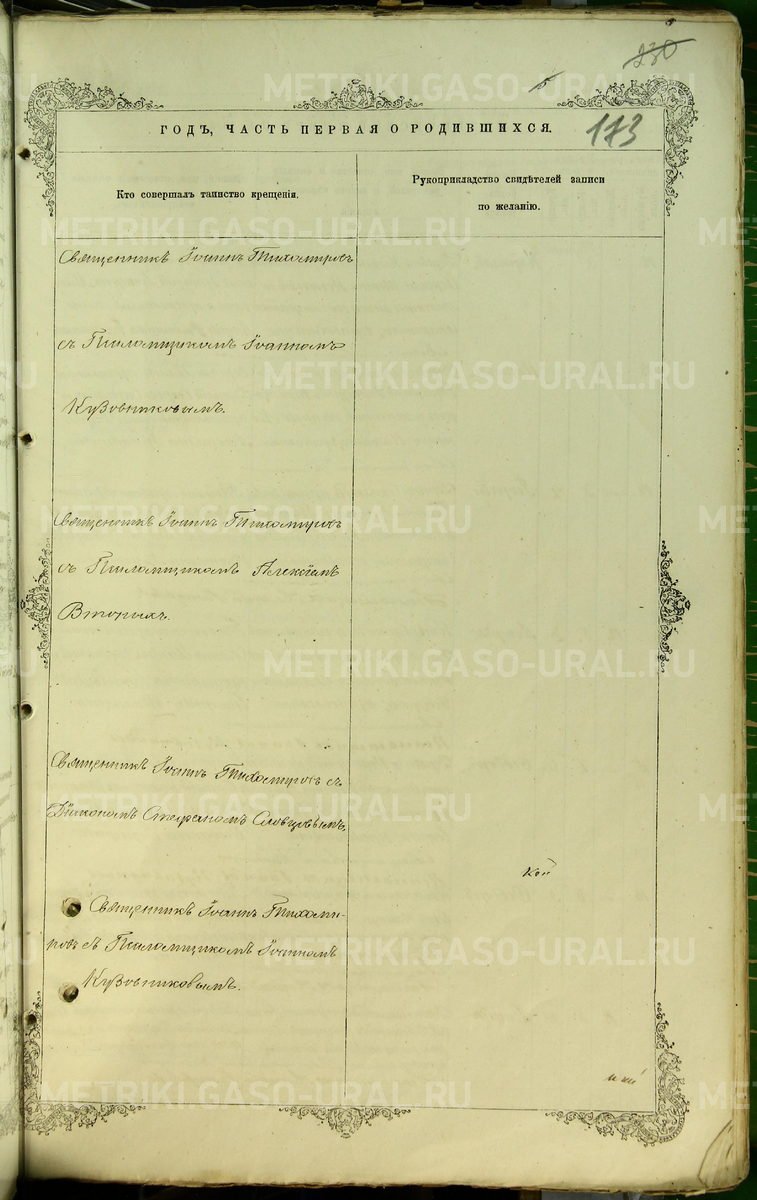 230
173
ГОДЪ, ЧАСТЬ ПЕРВАЯ О РОДИВШИХСЯ.
Кто совершалъ таинство крещенія.
Рукоприкладство свидѣтелей записи
по желанію.
Священникъ Іоаннъ Тихомировъ
съ Псаломщикомъ Іоанномъ
Кузовниковымъ.
Священникъ Іоаннъ Тихомировъ
съ Псаломщикомъ Алексіемъ
Вторыхъ.
Священникъ Іоаннъ Тихомировъ съ
Діакономъ Стефаномъ Словцовымъ.
Кой
Священникъ Іоаннъ Тихоми-
ровъ съ Псаломщикомъ Іоанномъ
Кузовниковымъ.
METRIKI.GASO-URAL.RU